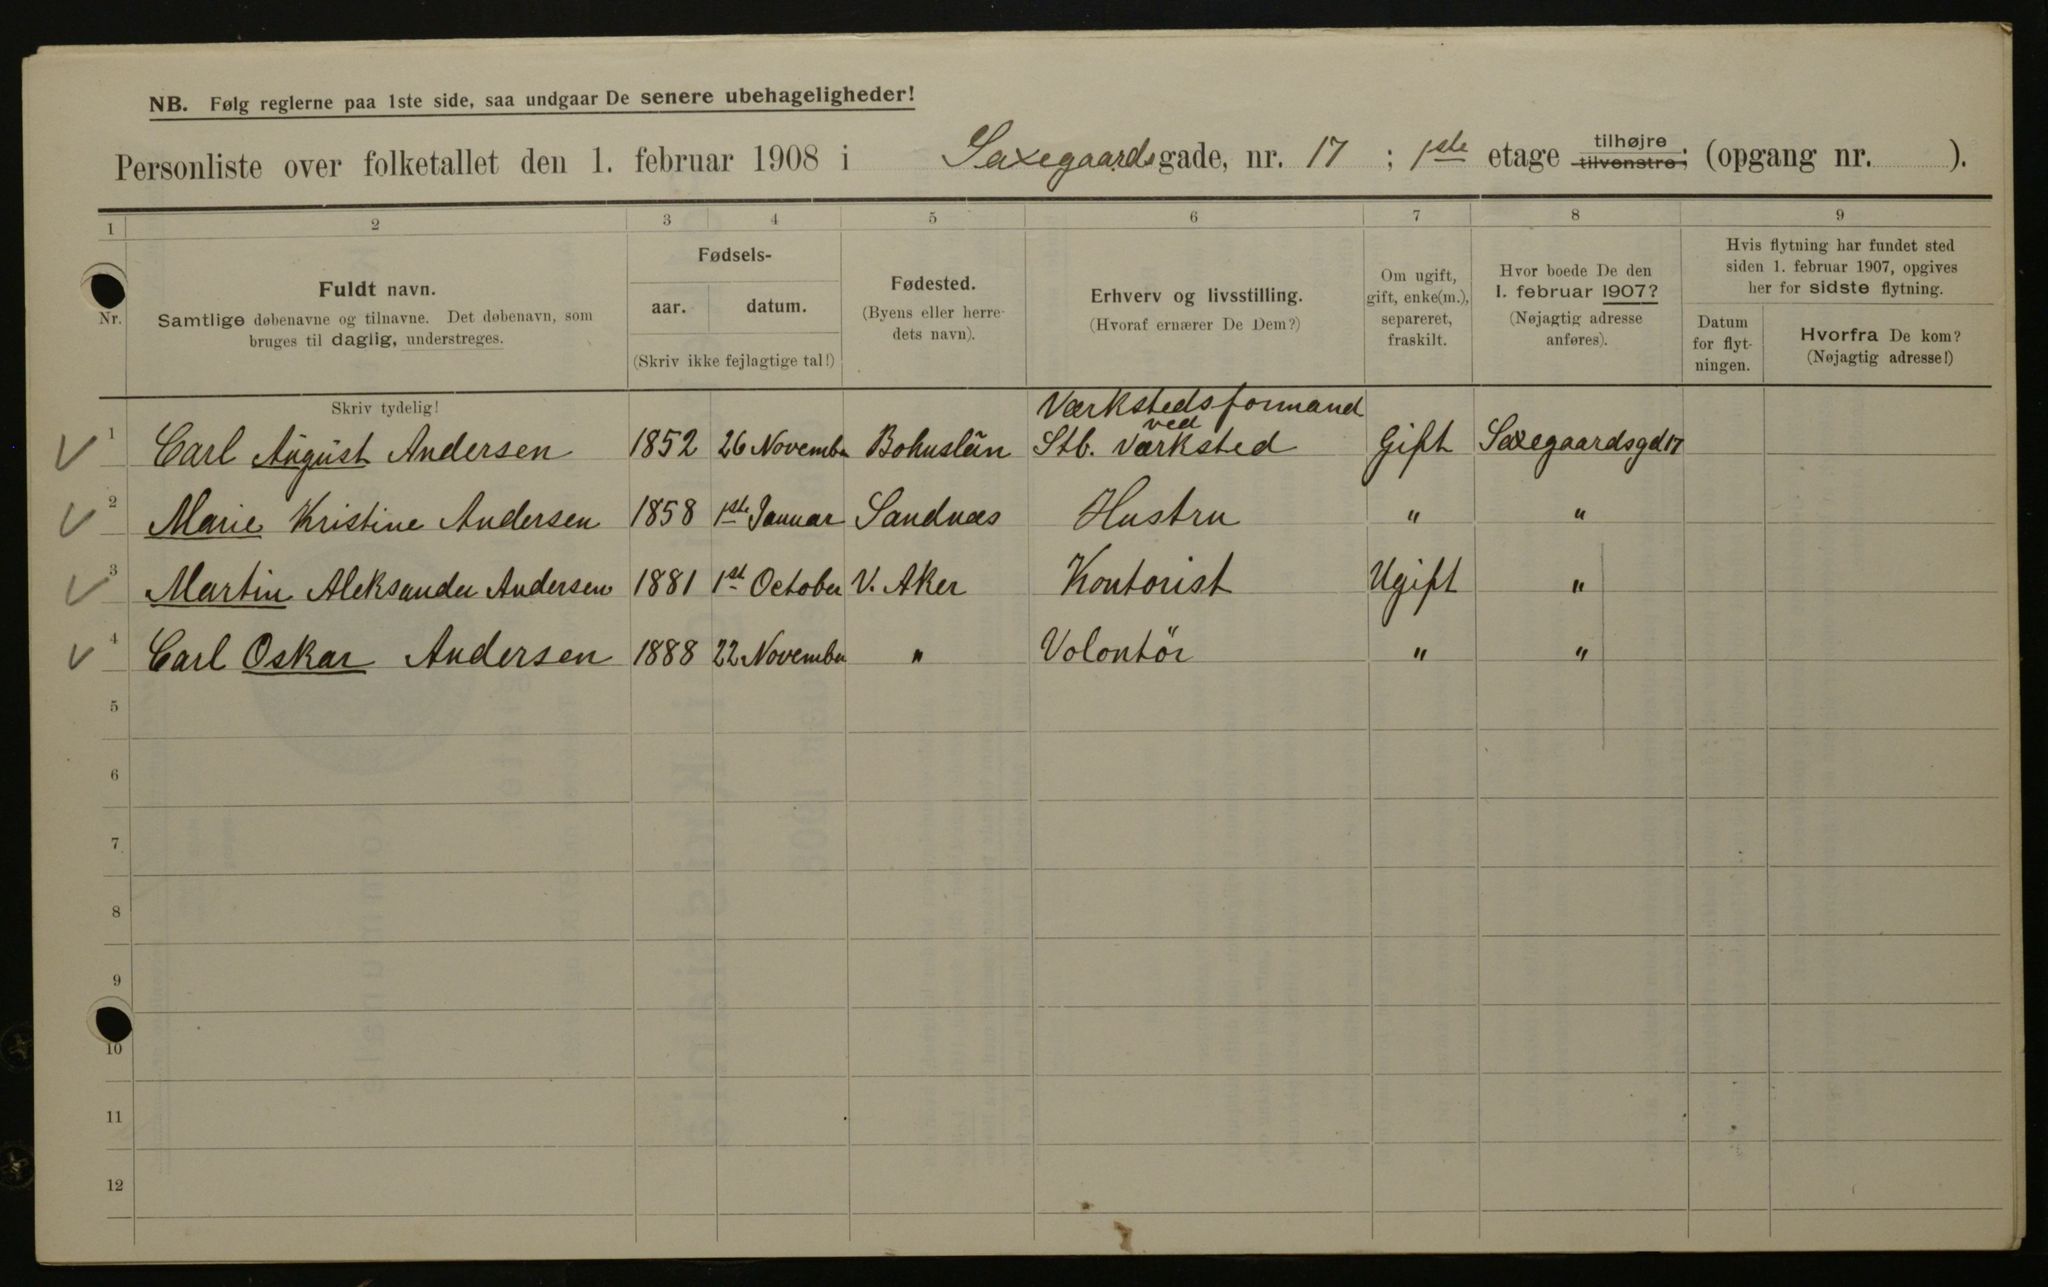 NB. Følg reglerne paa 1ste side, saa undgaar De senere ubehageligheder!
Personliste over folketallet den 1. februar 1908 i Saxegaardsgade, nr. 17 ; 1ste etage tilhøjre tilvenstre; (opgang nr. ).
1 2 3 4 5 6 7 8 9
Nr.
Fuldt navn.
Samtlige døbenavne og tilnavne. Det døbenavn, som
bruges til daglig, understreges.
Skriv tydelig!
Fødsels-
aar. datum.
(Skriv ikke fejlagtige tal!)
Fødested.
(Byens eller herre-
dets navn).
Erhverv og livsstilling.
(Hvoraf ernærer De Dem?)
Om ugift,
gift, enke(m.),
separeret,
fraskilt.
Hvor boede De den
1. februar 1907?
(Nøjagtig adresse
anføres).
Hvis flytning har fundet sted
siden 1. februar 1907, opgives
her for sidste flytning.
Datum
for flyt-
ningen.
Hvorfra De kom?
(Nøjagtig adresse!)
Værkstedsformand
ved
1 Carl August Andersen 1852 26 November Bohuslän Stb. Værksted Gift Saxegaardsgd 17
2 Marie Kristine Andersen 1858 1ste Januar Sandnæs Hustru " "
3 Martin Aleksander Andersen 1881 1st October V. Aker Kontorist Ugift "
4 Carl Oskar Andersen 1888 22 November " Volontör " "
5
6
7
8
9
10
11
12